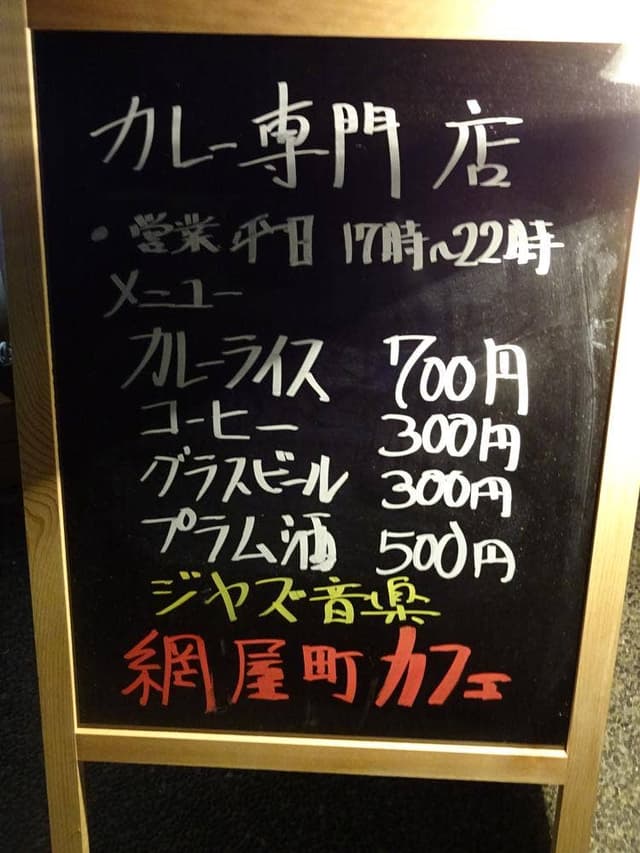 カレー専門店
・営業平日 17時~22時
メニュー
カレーライス 700円
コーヒー 300円
グラスビール 300円
プラム酒 500円
ジャズ音楽
網屋町カフェ